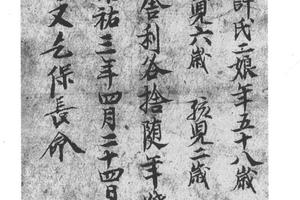 許氏二娘年五十八歲
見六歲 孩兒二歲
舍利各捨随年
祐三年四月二十四日
又乞保長命